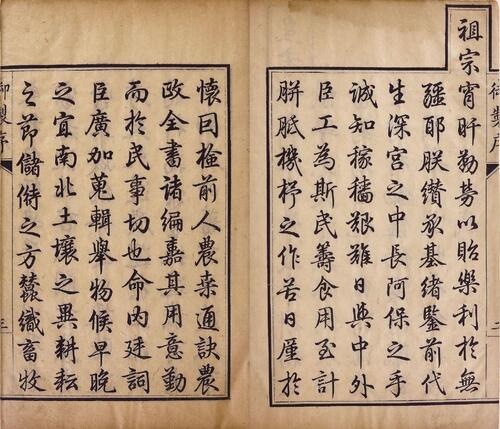 祖宗宵旰勤勞以貽樂利於無
疆耶朕纘承基緒鑒前代
生深宮之中長阿保之手
誠知稼穡艱難日與中外
臣工為斯民籌食用至計
胼胝機杼之作苦日廑於
懷因檢前人農桒通訣農
政全書諸編嘉其用意勤
而於民事切也命內廷詞
臣廣加蒐輯舉物候早晚
之宜南北土壤之異耕耘
之節儲偫之方蠶織畜牧
御製序
三